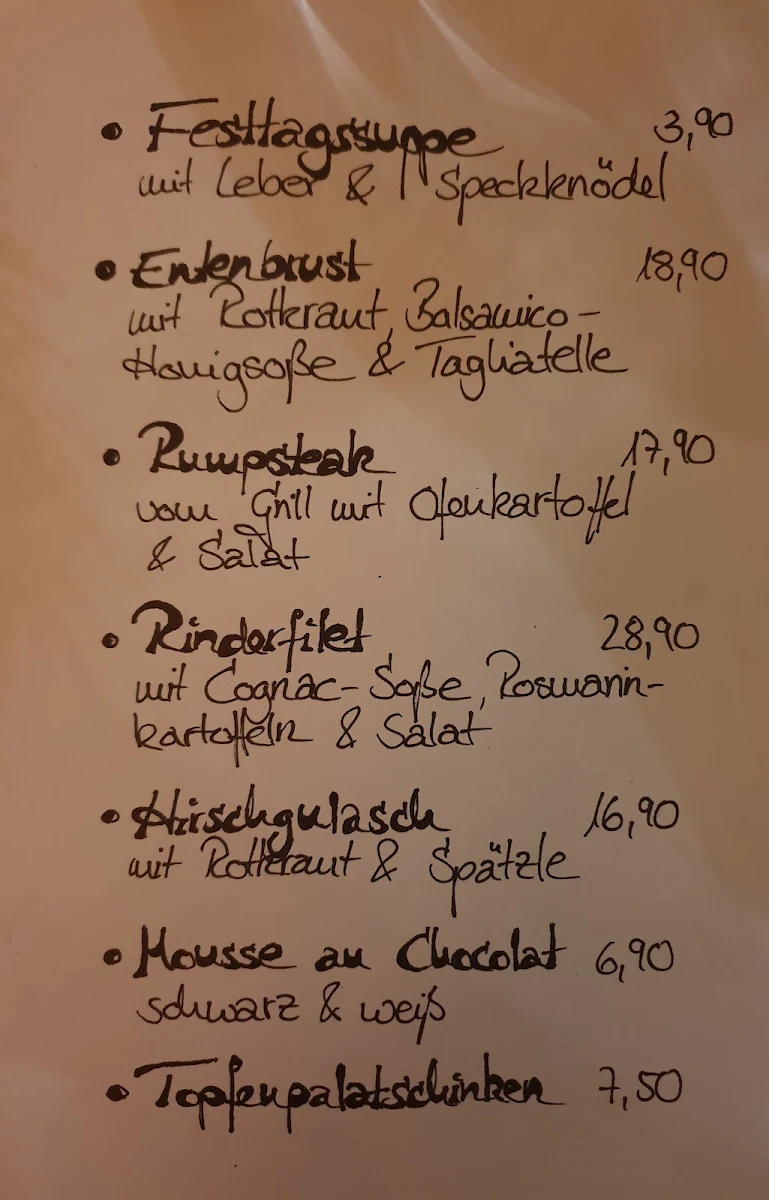 • Festtagssuppe 3,90
mit Leber & Speckknödel
• Entenbrust 18,90
mit Rotkraut, Balsamico-
Honigsoße & Tagliatelle
• Rumpsteak 17,90
vom Grill mit Ofenkartoffel
& Salat
• Rinderfilet 28,90
mit Cognac-Soße, Rosmarin-
kartoffeln & Salat
• Hirschgulasch 16,90
mit Rotkraut & Spätzle
• Mousse au Chocolat 6,90
schwarz & weiß
• Topfenpalatschinken 7,50